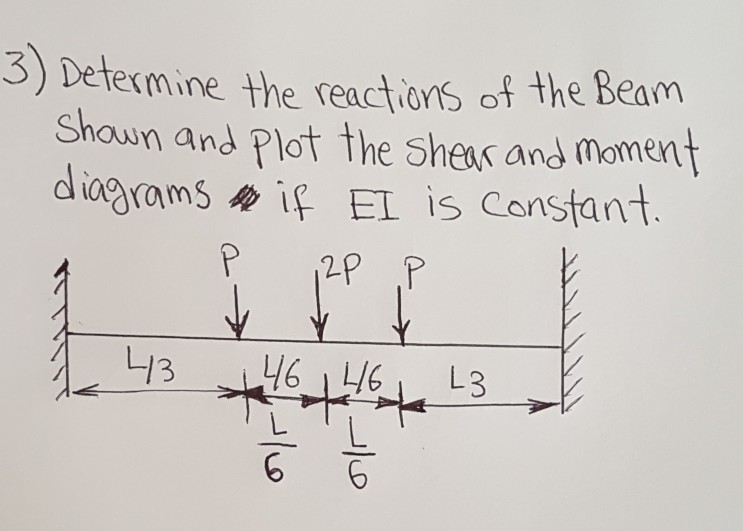 3) Determine the reactions of the Beam
Shown and Plot the shear and moment
diagrams if EI is constant.
P 2P P
L/3 L/6 L/6 L3
L/6 L/6